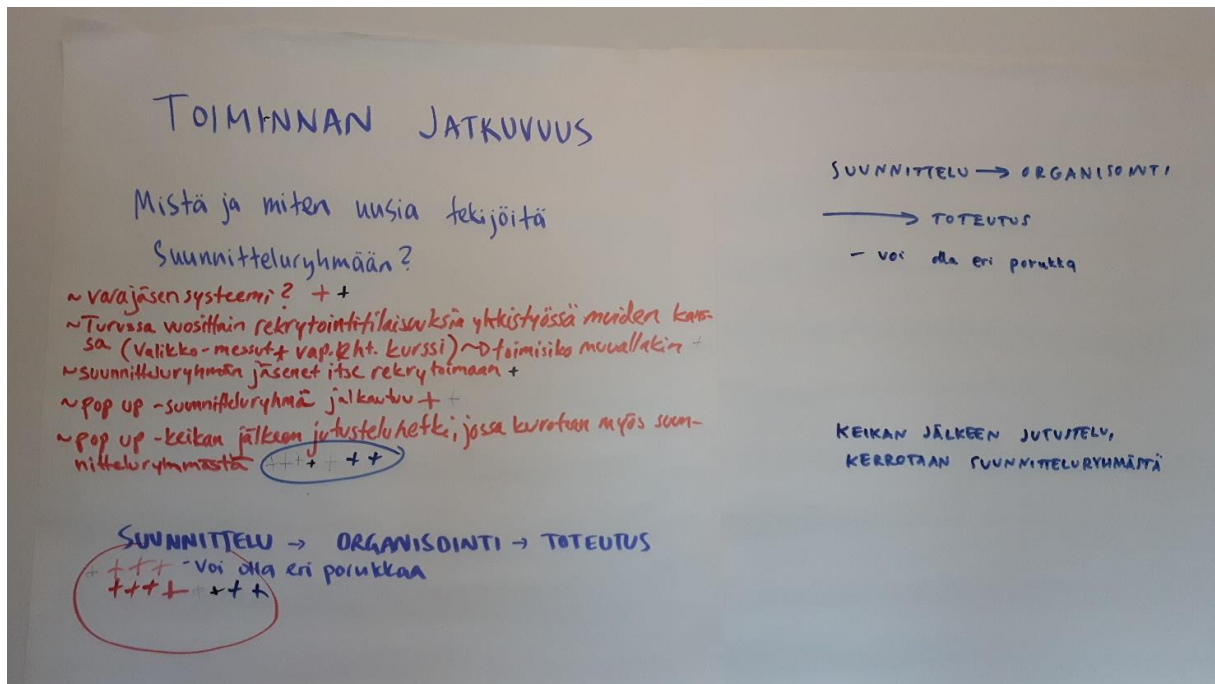 TOIMINNAN JATKUVUUS
Mistä ja miten uusia tekijöitä
Suunnitteluryhmään?
~ varajäsensysteemi? + +
~ Turussa vuosittain rekrytointitilaisuuksia yhteistyössä muiden kans-
sa (Valikko-messut + vap.eht. kurssi) ~> toimisiko muuallakin +
~ suunnitteluryhmän jäsenet itse rekrytoimaan +
~ pop up -suunnitteluryhmä jalkautuu + +
~ pop up -keikan jälkeen jutusteluhetki, jossa kerrotaan myös suun-
nitteluryhmästä + + + + + + +
SUUNNITTELU → ORGANISOINTI → TOTEUTUS
+ + + + - voi olla eri porukkaa
+ + + + + + + +
SUUNNITTELU → ORGANISOINTI
→ TOTEUTUS
- voi olla eri porukka
KEIKAN JÄLKEEN JUTUSTELU,
KERROTAAN SUUNNITTELURYHMÄSTÄ